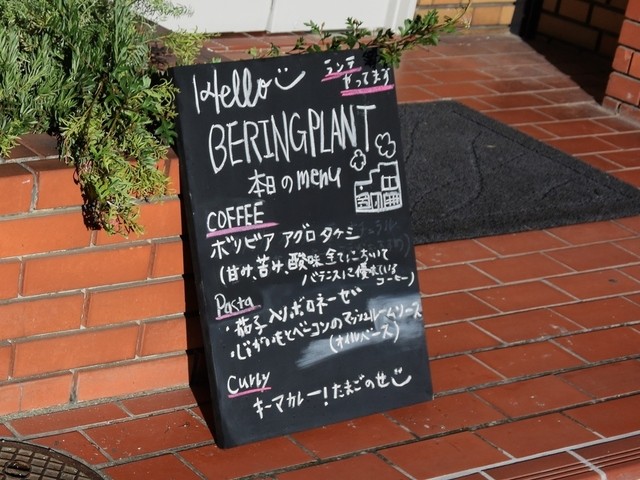 Hello
ランチ
やってます
BERING PLANT
本日のmenu
COFFEE
ボリビア アグロタケシ
(甘み、苦み、酸味 全てにおいて
バランスに優れている
コーヒー)
Pasta
・茄子入りボロネーゼ
・じゃがいもとベーコンのマッシュルームソース
(オイルベース)
Curry
キーマカレー!たまごのせ